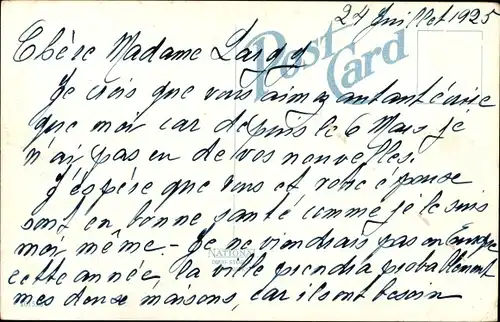 24 Juillet 1925
Post Card
Chère Madame
Je crois que vous aimez autant écrire
que moi car depuis le 6 Mars je
n'ai pas eu de vos nouvelles.
J'espère que vous et votre épouse
sont en bonne santé comme je le suis
moi même - Je ne viendrais pas en Europe
cette année, la ville prendra probablement
mes douse maisons, car ils ont besoin
NATIONAL